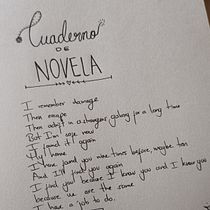 Cuaderno
DE
NOVELA
I remember damage
Then escape
Then adrift in a stranger's galaxy for a long time
But I'm safe now
I found it again
My home
I have found you nine times before, maybe ten
And I'll find you again
I find you because I know you and I know you
because we are the same
I have a job to do.